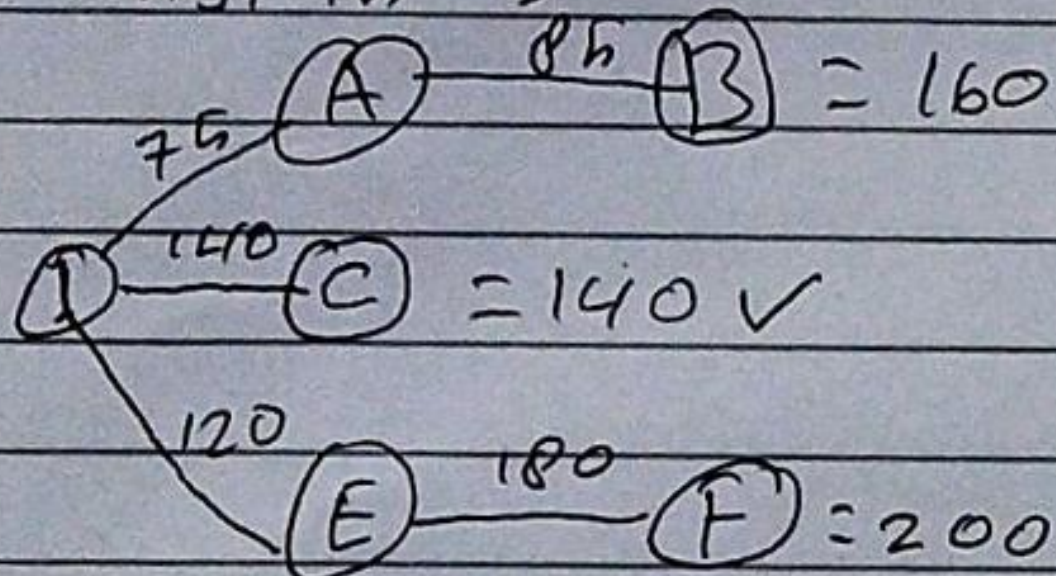 A 85 B = 160
75
I 140 C = 140 ✓
120
E 180 F = 200